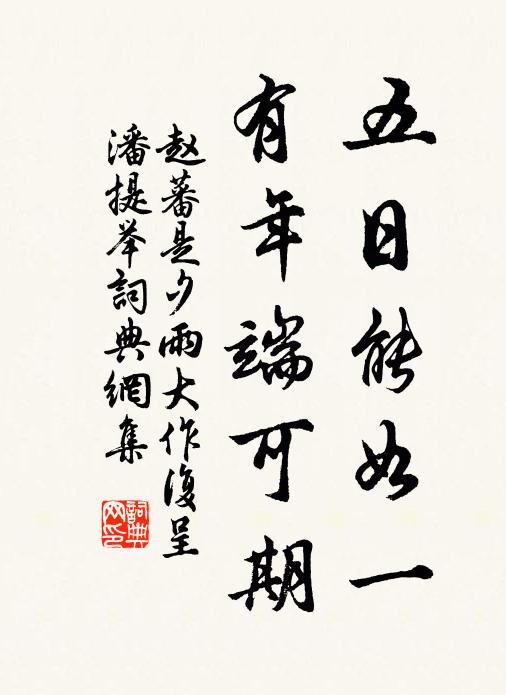 五日能如一
有年端可期
赵蕃是夕雨大作復呈
潘提举詞典網集
詞典网印